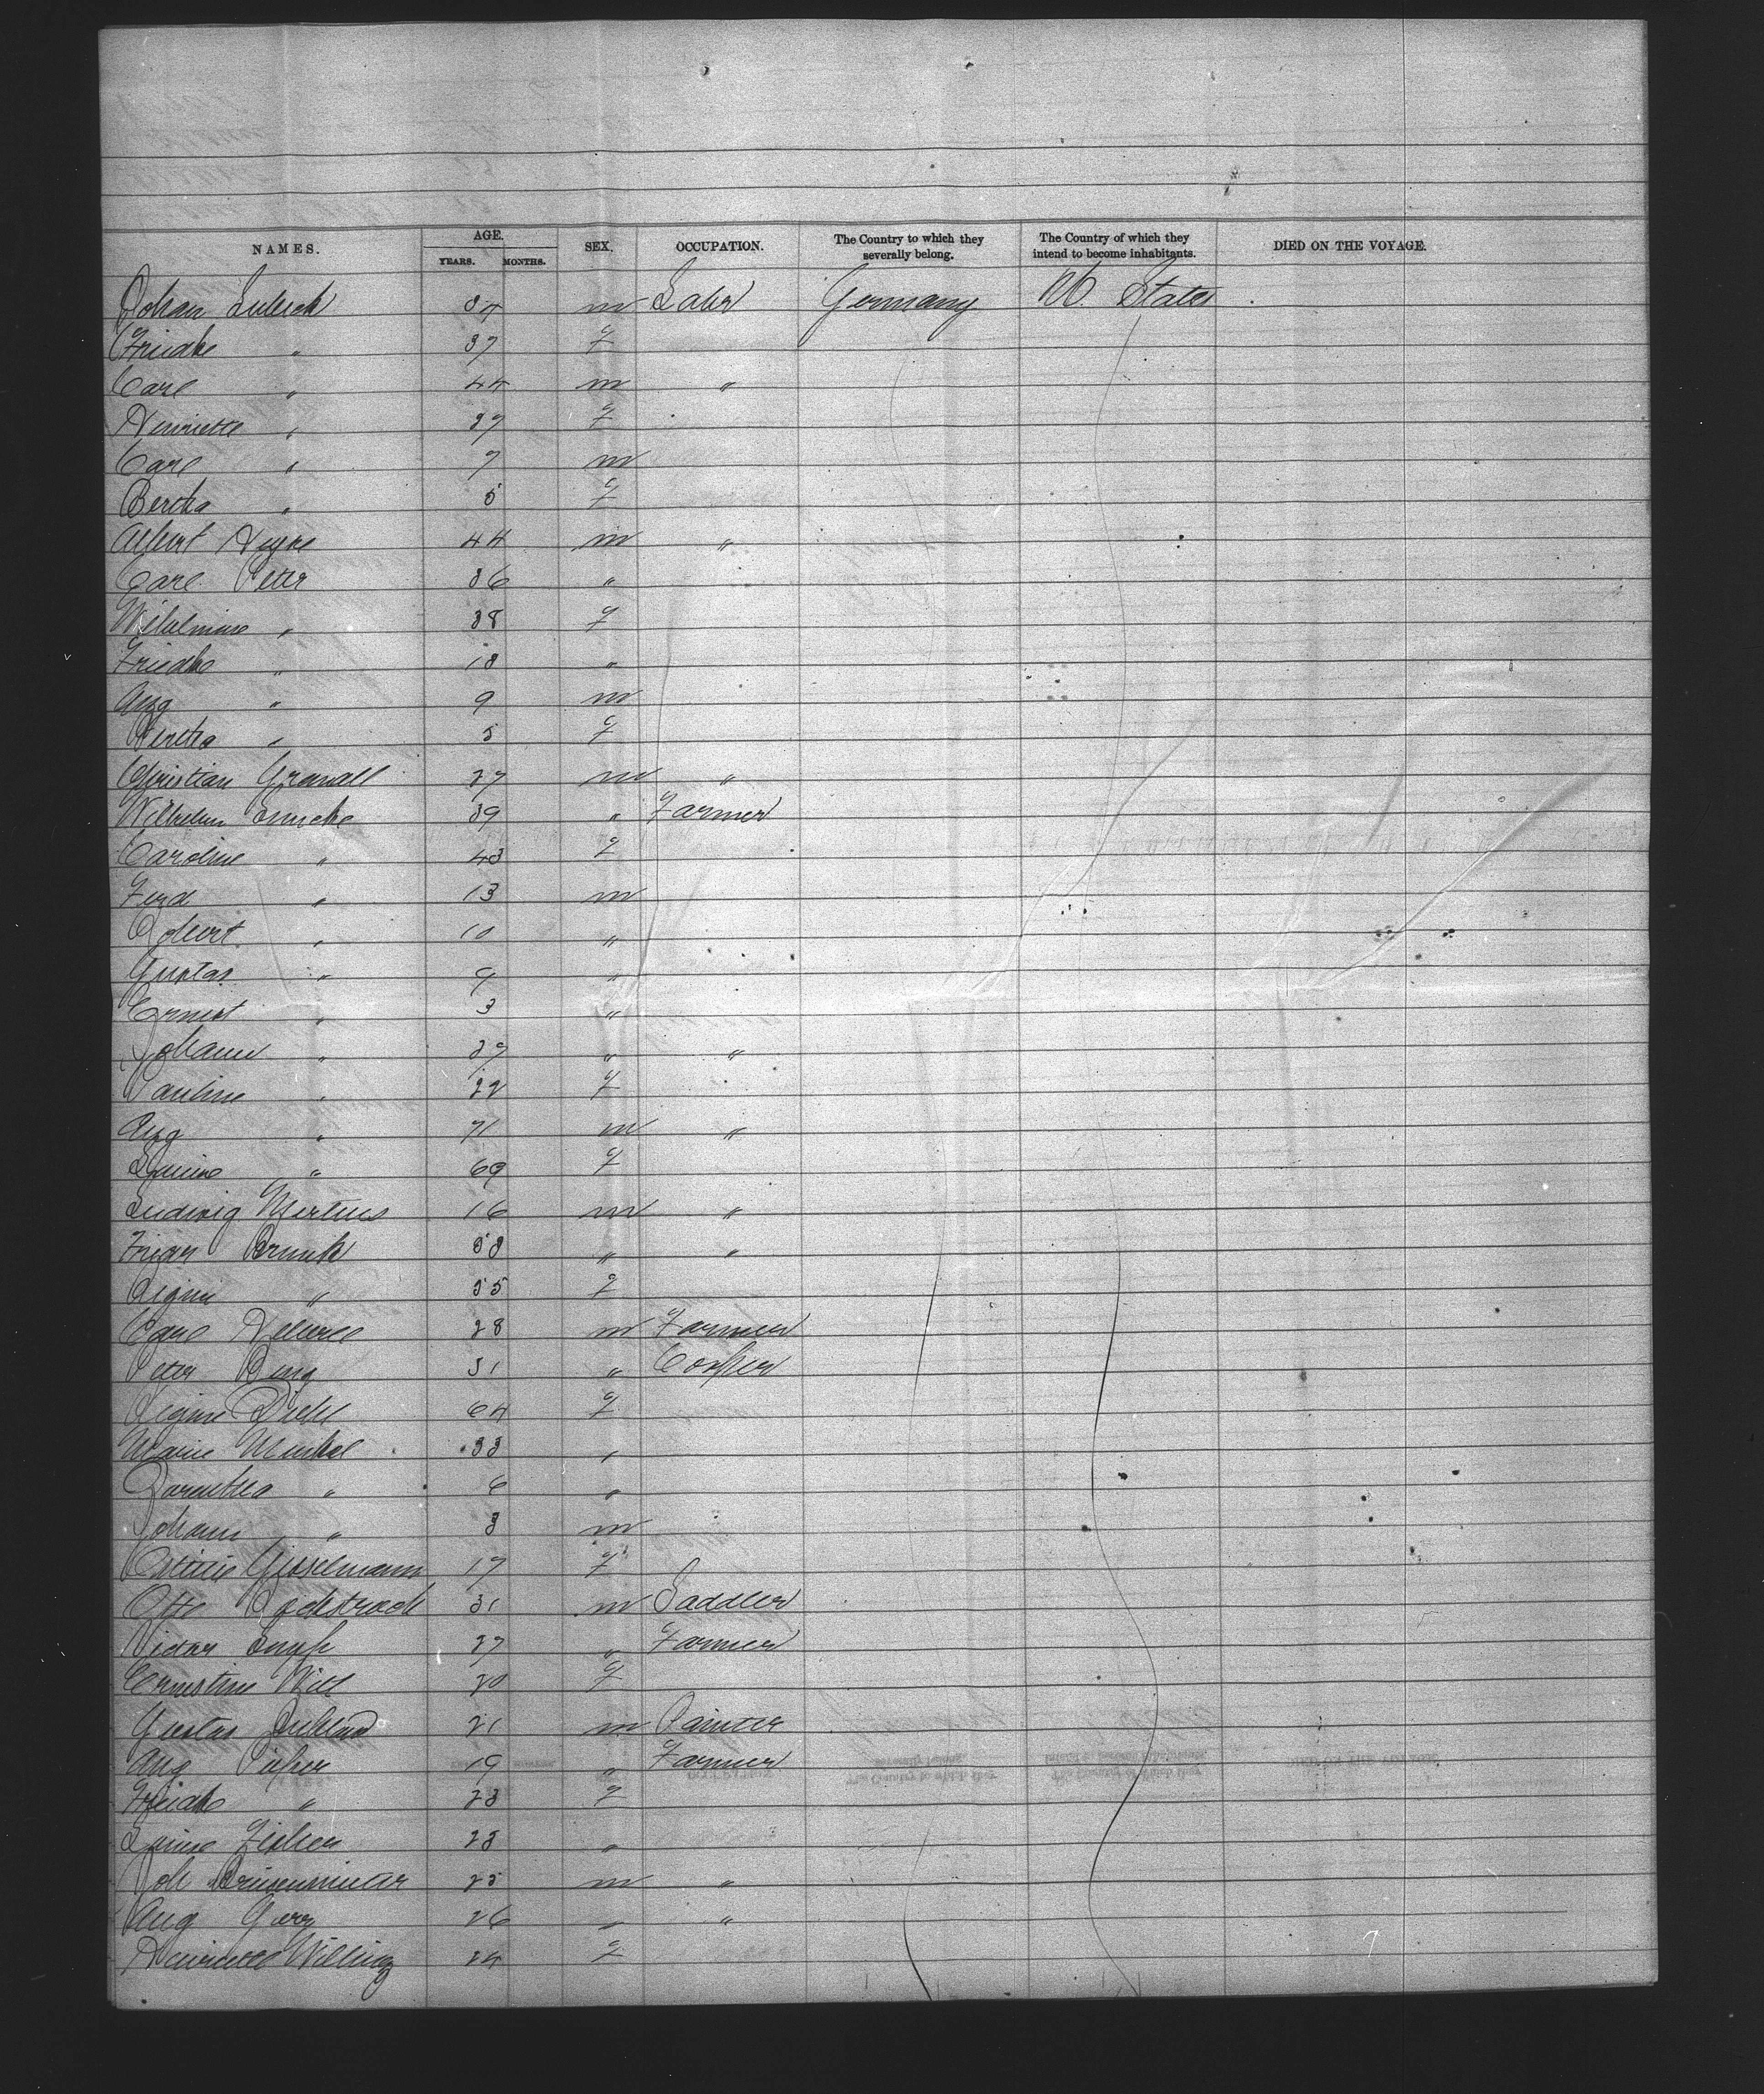 NAMES. AGE. YEARS. MONTHS. SEX. OCCUPATION. The Country to which they severally belong. The Country of which they intend to become inhabitants. DIED ON THE VOYAGE.
Johan 34 m Labr Germany U. States
Friedke " 37 f
Carl " 44 m "
Henriette " 37 f
Carl " 7 m
Bertha " 5 f
Albert 44 m "
Carl Peter 36 "
Wilhelmine " 38 f
Friedke " 18 "
Aug " 9 m
Bertha " 5 f
Christian Granall 27 m "
Wilhelm 39 " Farmer
Caroline " 43 f
Ferd " 13 m
Robert " 10 "
Gustav " 9 "
Ernest " 3 "
Johann " 29 " "
Pauline " 22 f
Aug " 71 m "
Louise " 69 f
Ludwig Mertens 16 m "
Brunk 58 " "
Regine " 55 f
Carl 28 m Farmer
Peter Berg 31 " Cooper
Regine Diehl 64 f
Marie Munkel 33 "
Dorothea " 6 "
Johann " 3 m
Ottilie Gisselmann 17 f
Otto Rockstroch 31 m Saddler
Victor 27 " Farmer
Ernestine Will 20 f
Gustav 21 m Painter
Aug Pieper 19 " Farmer
Friedke " 23 f
Louise Fischer 23 "
Joh 25 m "
Aug Gerz 26 " "
Henriette Willing 24 f